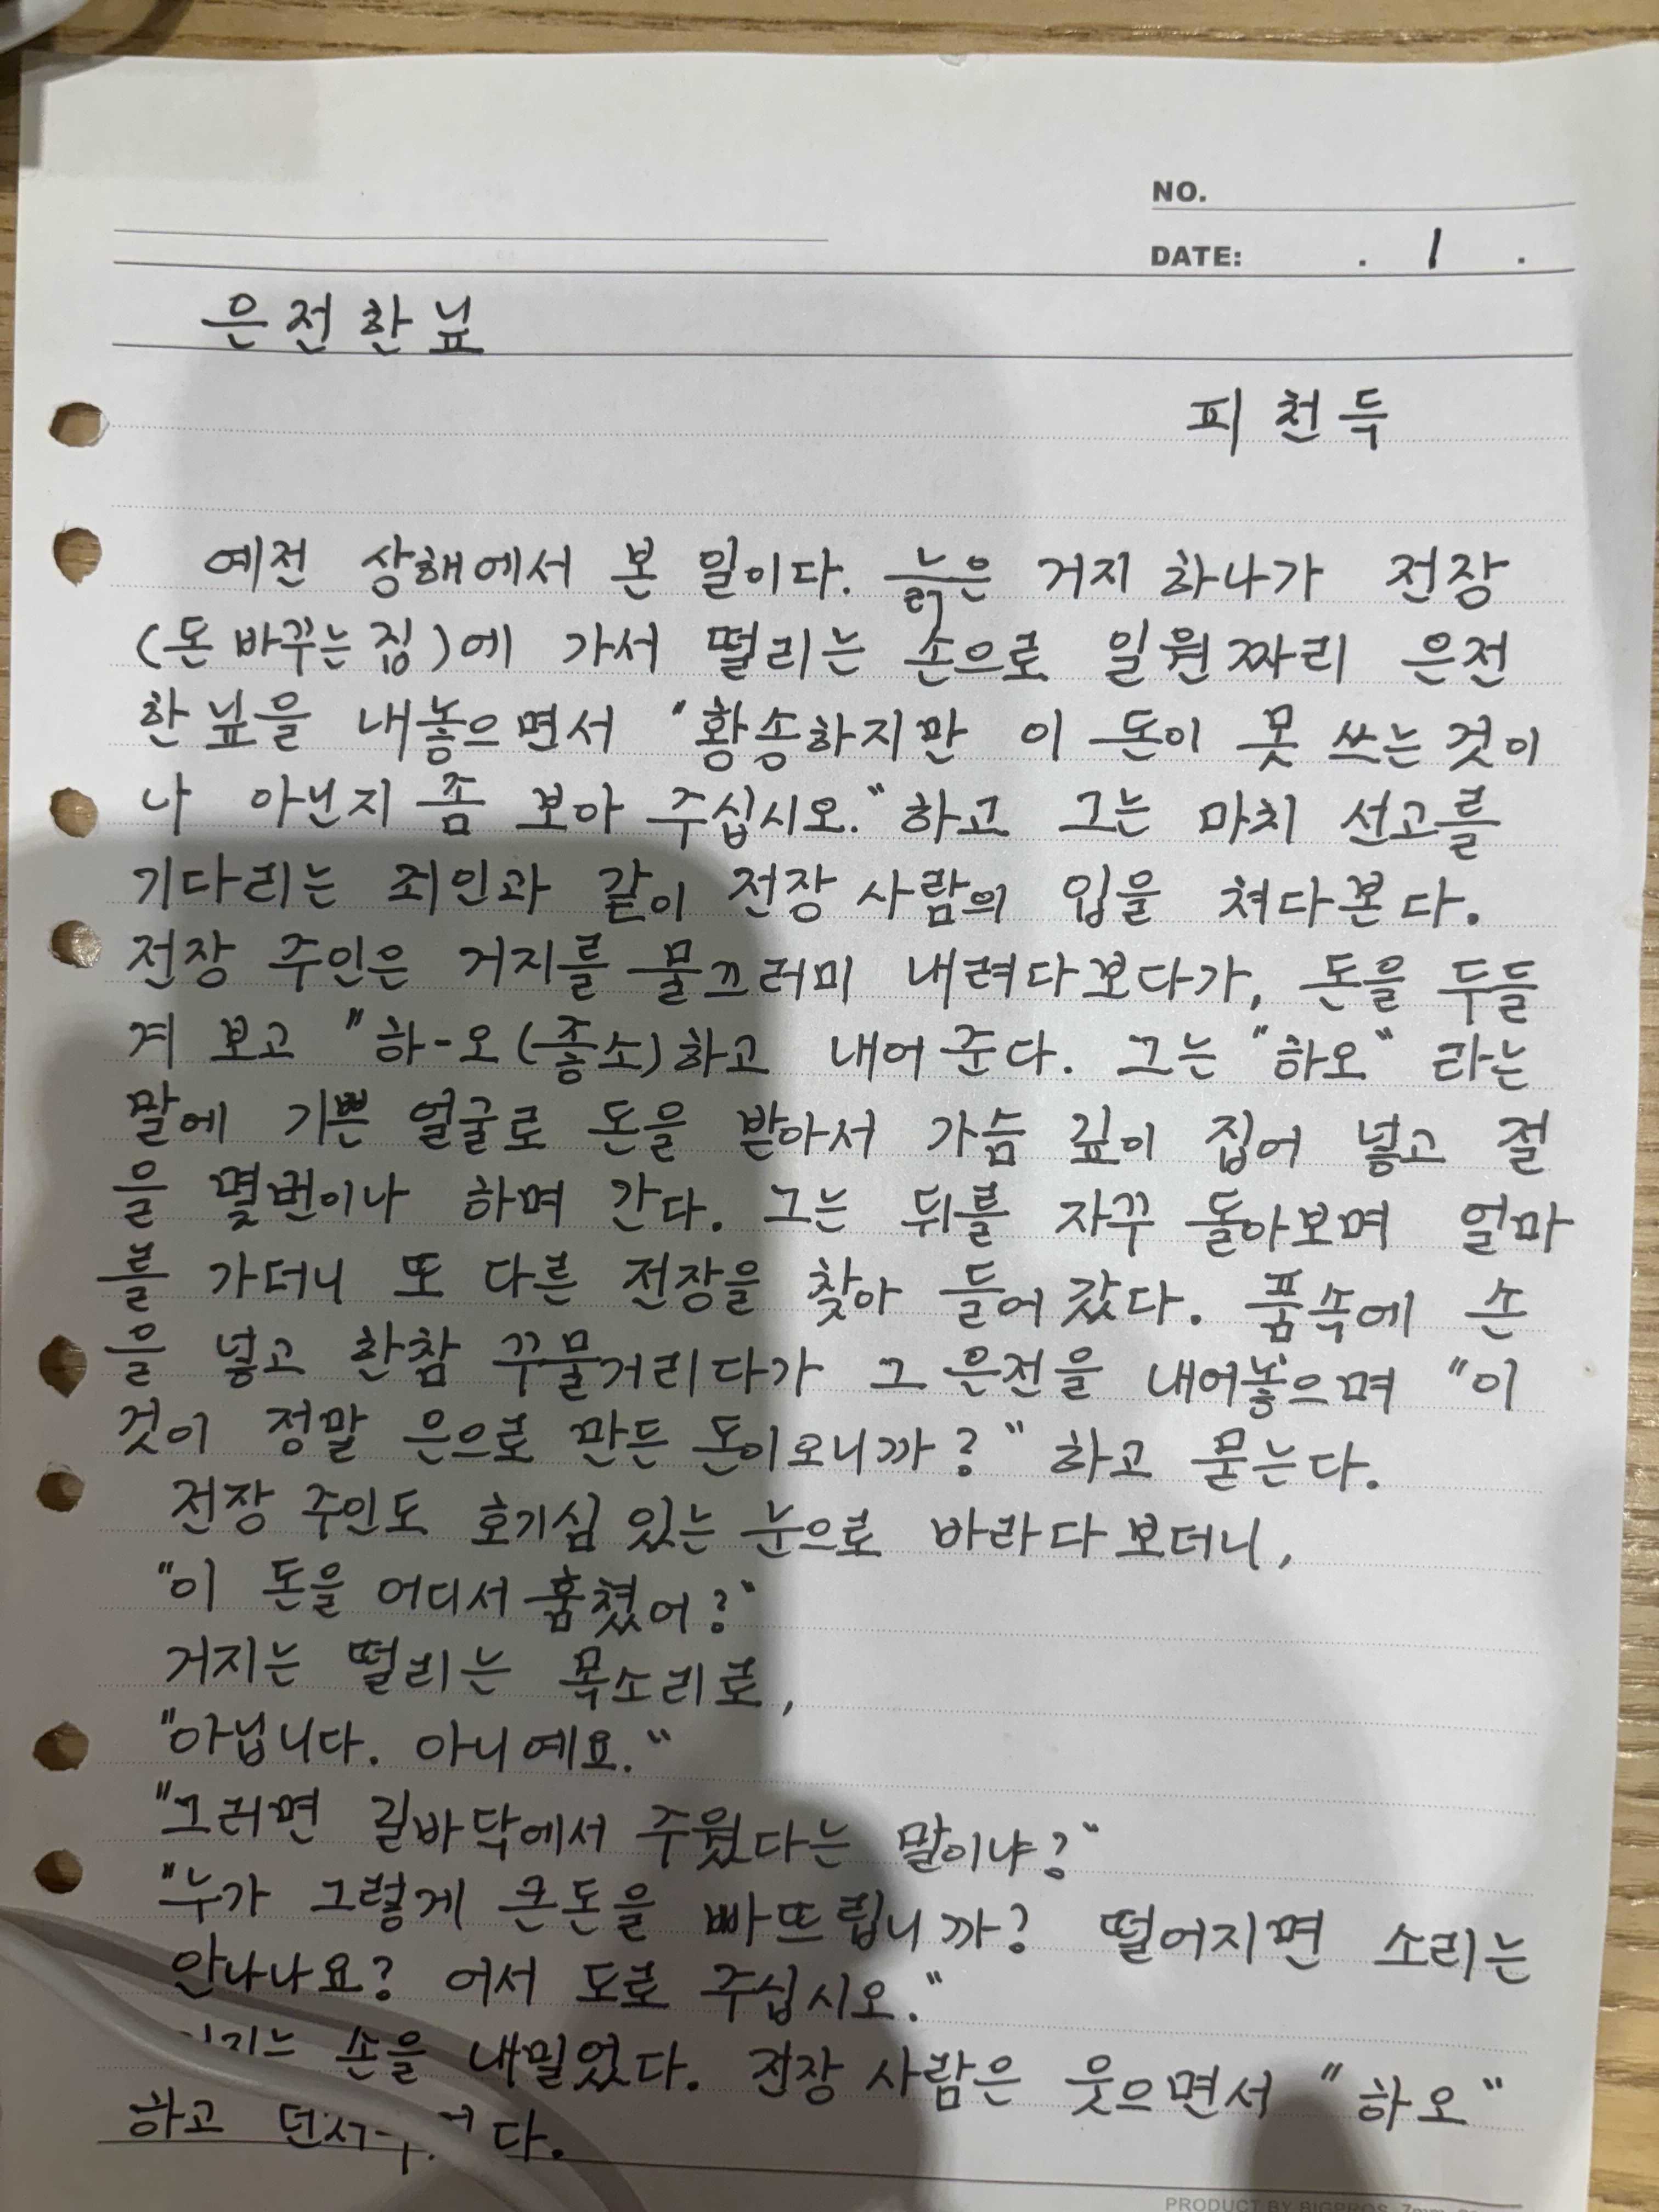 NO.
DATE: . 1 .
은전한닢
피천득
예전 상해에서 본 일이다. 늙은 거지 하나가 전장
(돈 바꾸는 집)에 가서 떨리는 손으로 일원짜리 은전
한닢을 내놓으면서 "황송하지만 이 돈이 못 쓰는 것이
나 아닌지 좀 보아 주십시오." 하고 그는 마치 선고를
기다리는 죄인과 같이 전장 사람의 입을 쳐다본다.
전장 주인은 거지를 물끄러미 내려다보다가, 돈을 두들
겨 보고 "하-오(좋소)하고 내어 준다. 그는 "하오" 라는
말에 기쁜 얼굴로 돈을 받아서 가슴 깊이 집어 넣고 절
을 몇번이나 하며 간다. 그는 뒤를 자꾸 돌아보며 얼마
를 가더니 또 다른 전장을 찾아 들어 갔다. 품속에 손
을 넣고 한참 꾸물거리다가 그 은전을 내어놓으며 "이
것이 정말 은으로 만든 돈이오니까?" 하고 묻는다.
전장 주인도 호기심 있는 눈으로 바라다 보더니,
"이 돈을 어디서 훔쳤어?"
거지는 떨리는 목소리로,
"아닙니다. 아니예요."
"그러면 길바닥에서 주웠다는 말이냐?"
"누가 그렇게 큰돈을 빠뜨립니까? 떨어지면 소리는
안나나요? 어서 도로 주십시오."
손을 내밀었다. 전장 사람은 웃으면서 "하오"
하고